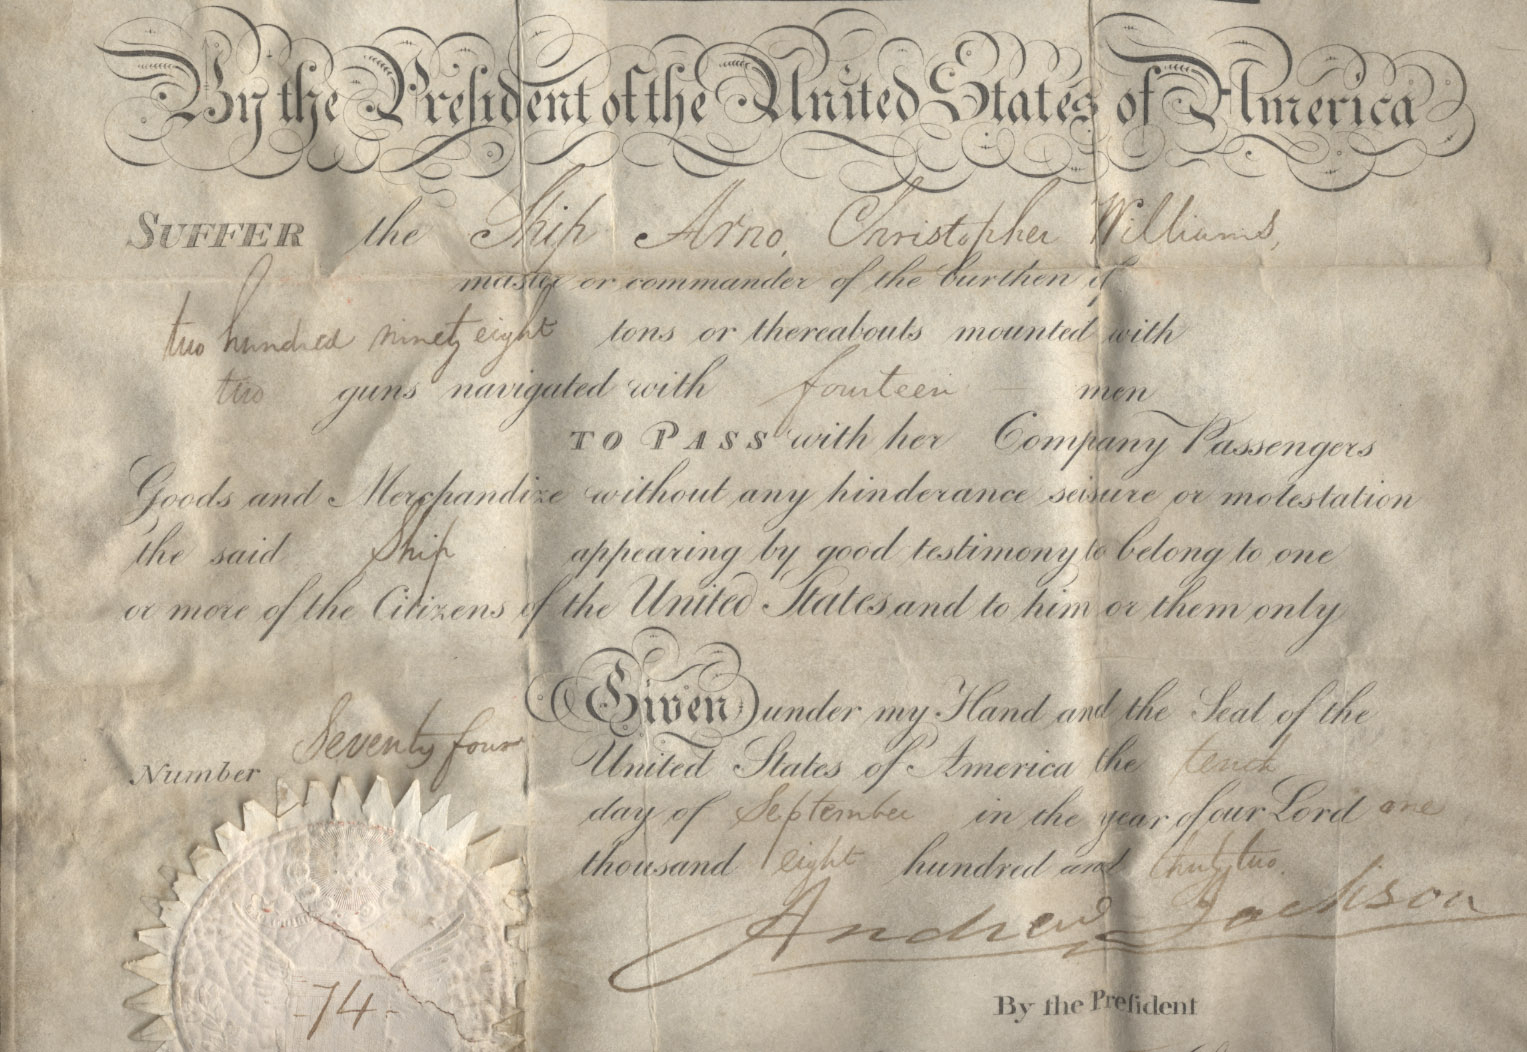 By the President of the United States of America
SUFFER the Ship Arno, Christopher Williams,
master or commander of the burthen of
two hundred ninety eight tons or thereabouts mounted with
two guns navigated with fourteen men
TO PASS with her Company Passengers
Goods and Merchandize without any hinderance seisure or molestation
the said Ship appearing by good testimony to belong to one
or more of the Citizens of the United States and to him or them only
Given under my Hand and the Seal of the
United States of America the tenth
day of September in the year of our Lord one
thousand eight hundred and thirty two.
Number Seventy four
Andrew Jackson
By the President
-74-